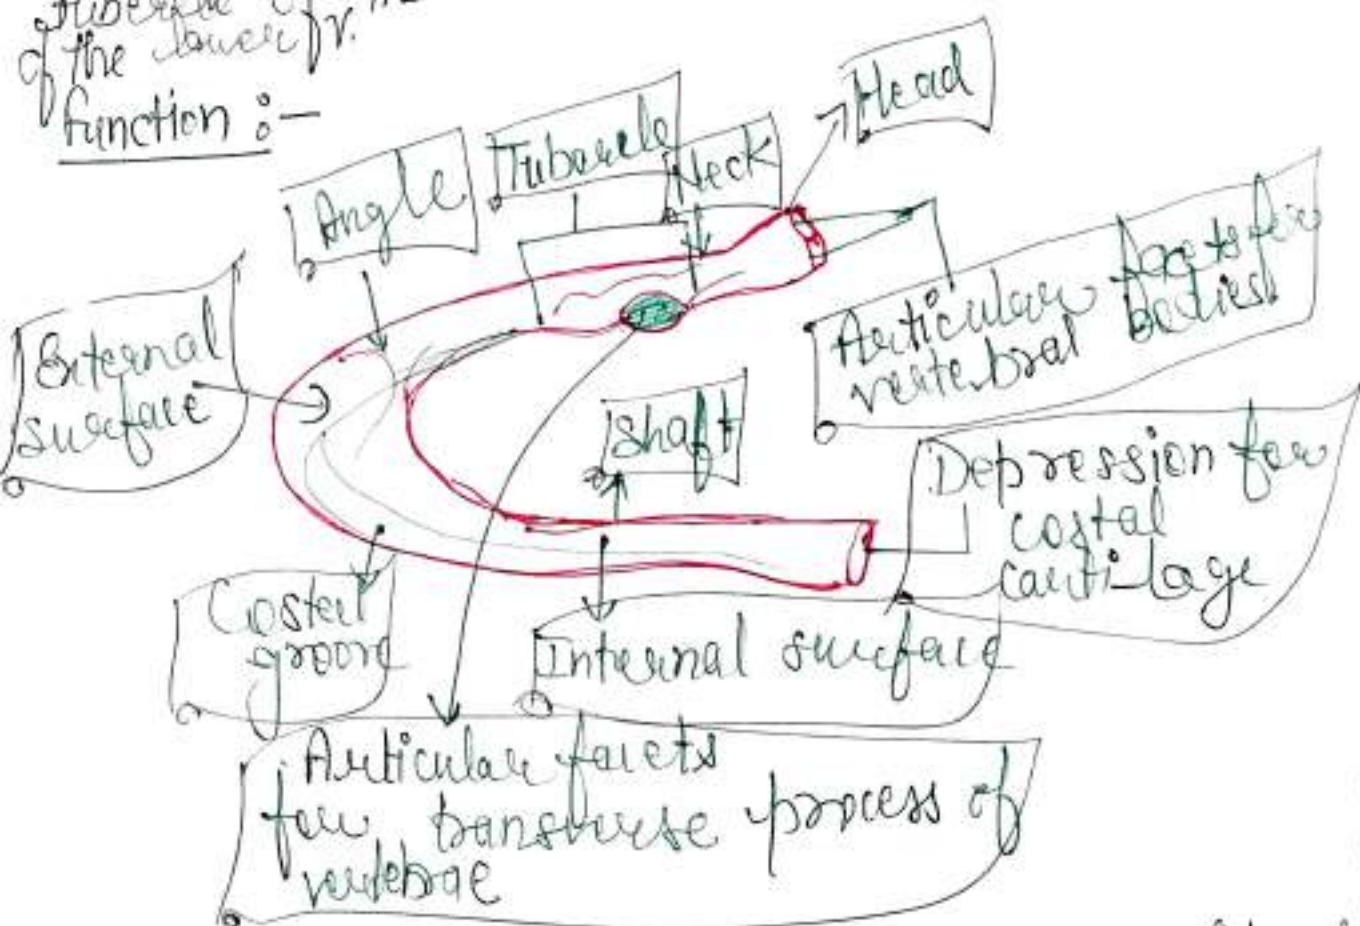 of the lower
function :-
Head
Tubercle
Neck
Angle
Articular facets for
vertebral bodies
External
surface
Shaft
Depression for
costal
cartilage
Costal
groove
Internal surface
Articular facets
for transverse process of
vertebrae